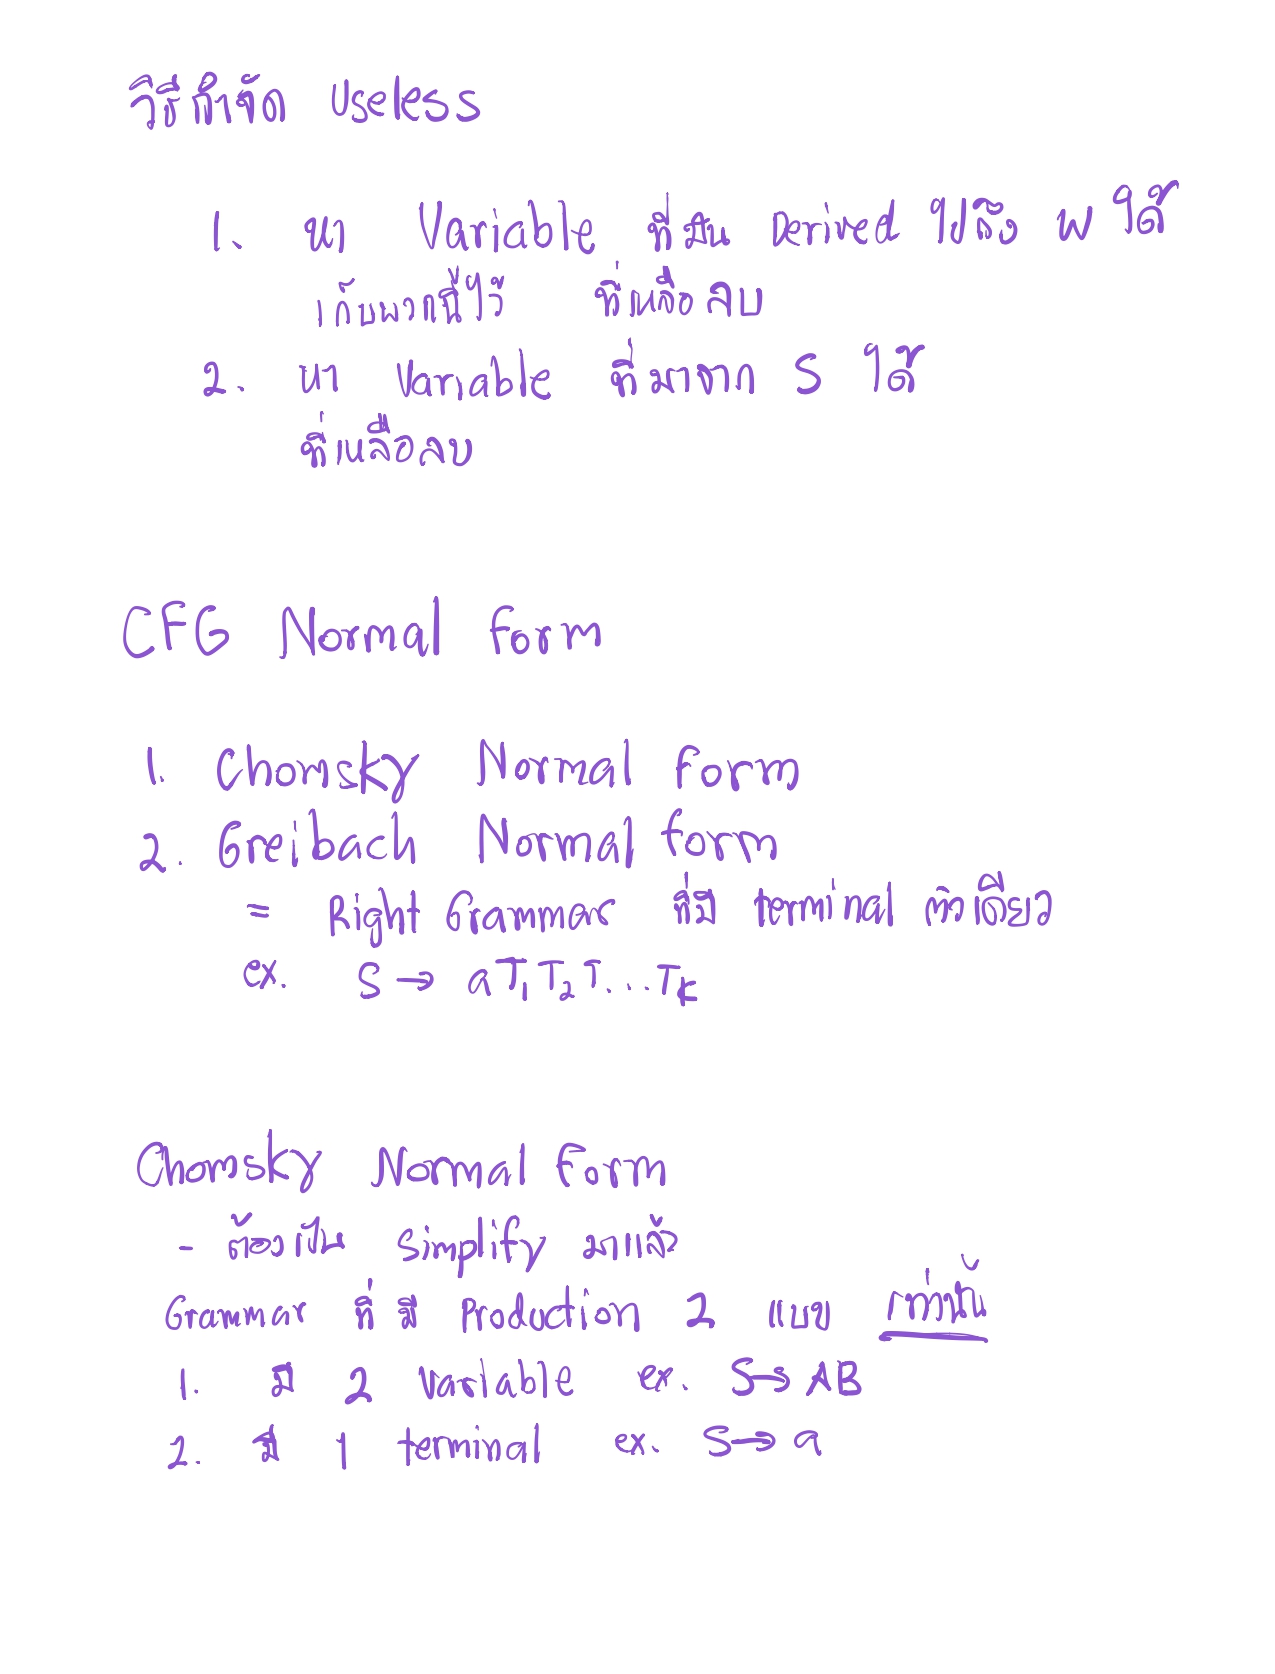 วิธีกำจัด Useless
1. หา Variable ที่มัน Derived ไปถึง w ได้
เก็บพวกนี้ไว้ ที่เหลือลบ
2. หา Variable ที่มาจาก S ได้
ที่เหลือลบ
CFG Normal form
1. Chomsky Normal form
2. Greibach Normal form
= Right Grammar ที่มี terminal ตัวเดียว
ex. S → aT₁T₂T...Tₖ
Chomsky Normal form
- ต้องเป็น Simplify มาแล้ว
Grammar ที่มี Production 2 แบบ เท่านั้น
1. มี 2 Variable ex. S → AB
2. มี 1 terminal ex. S → a